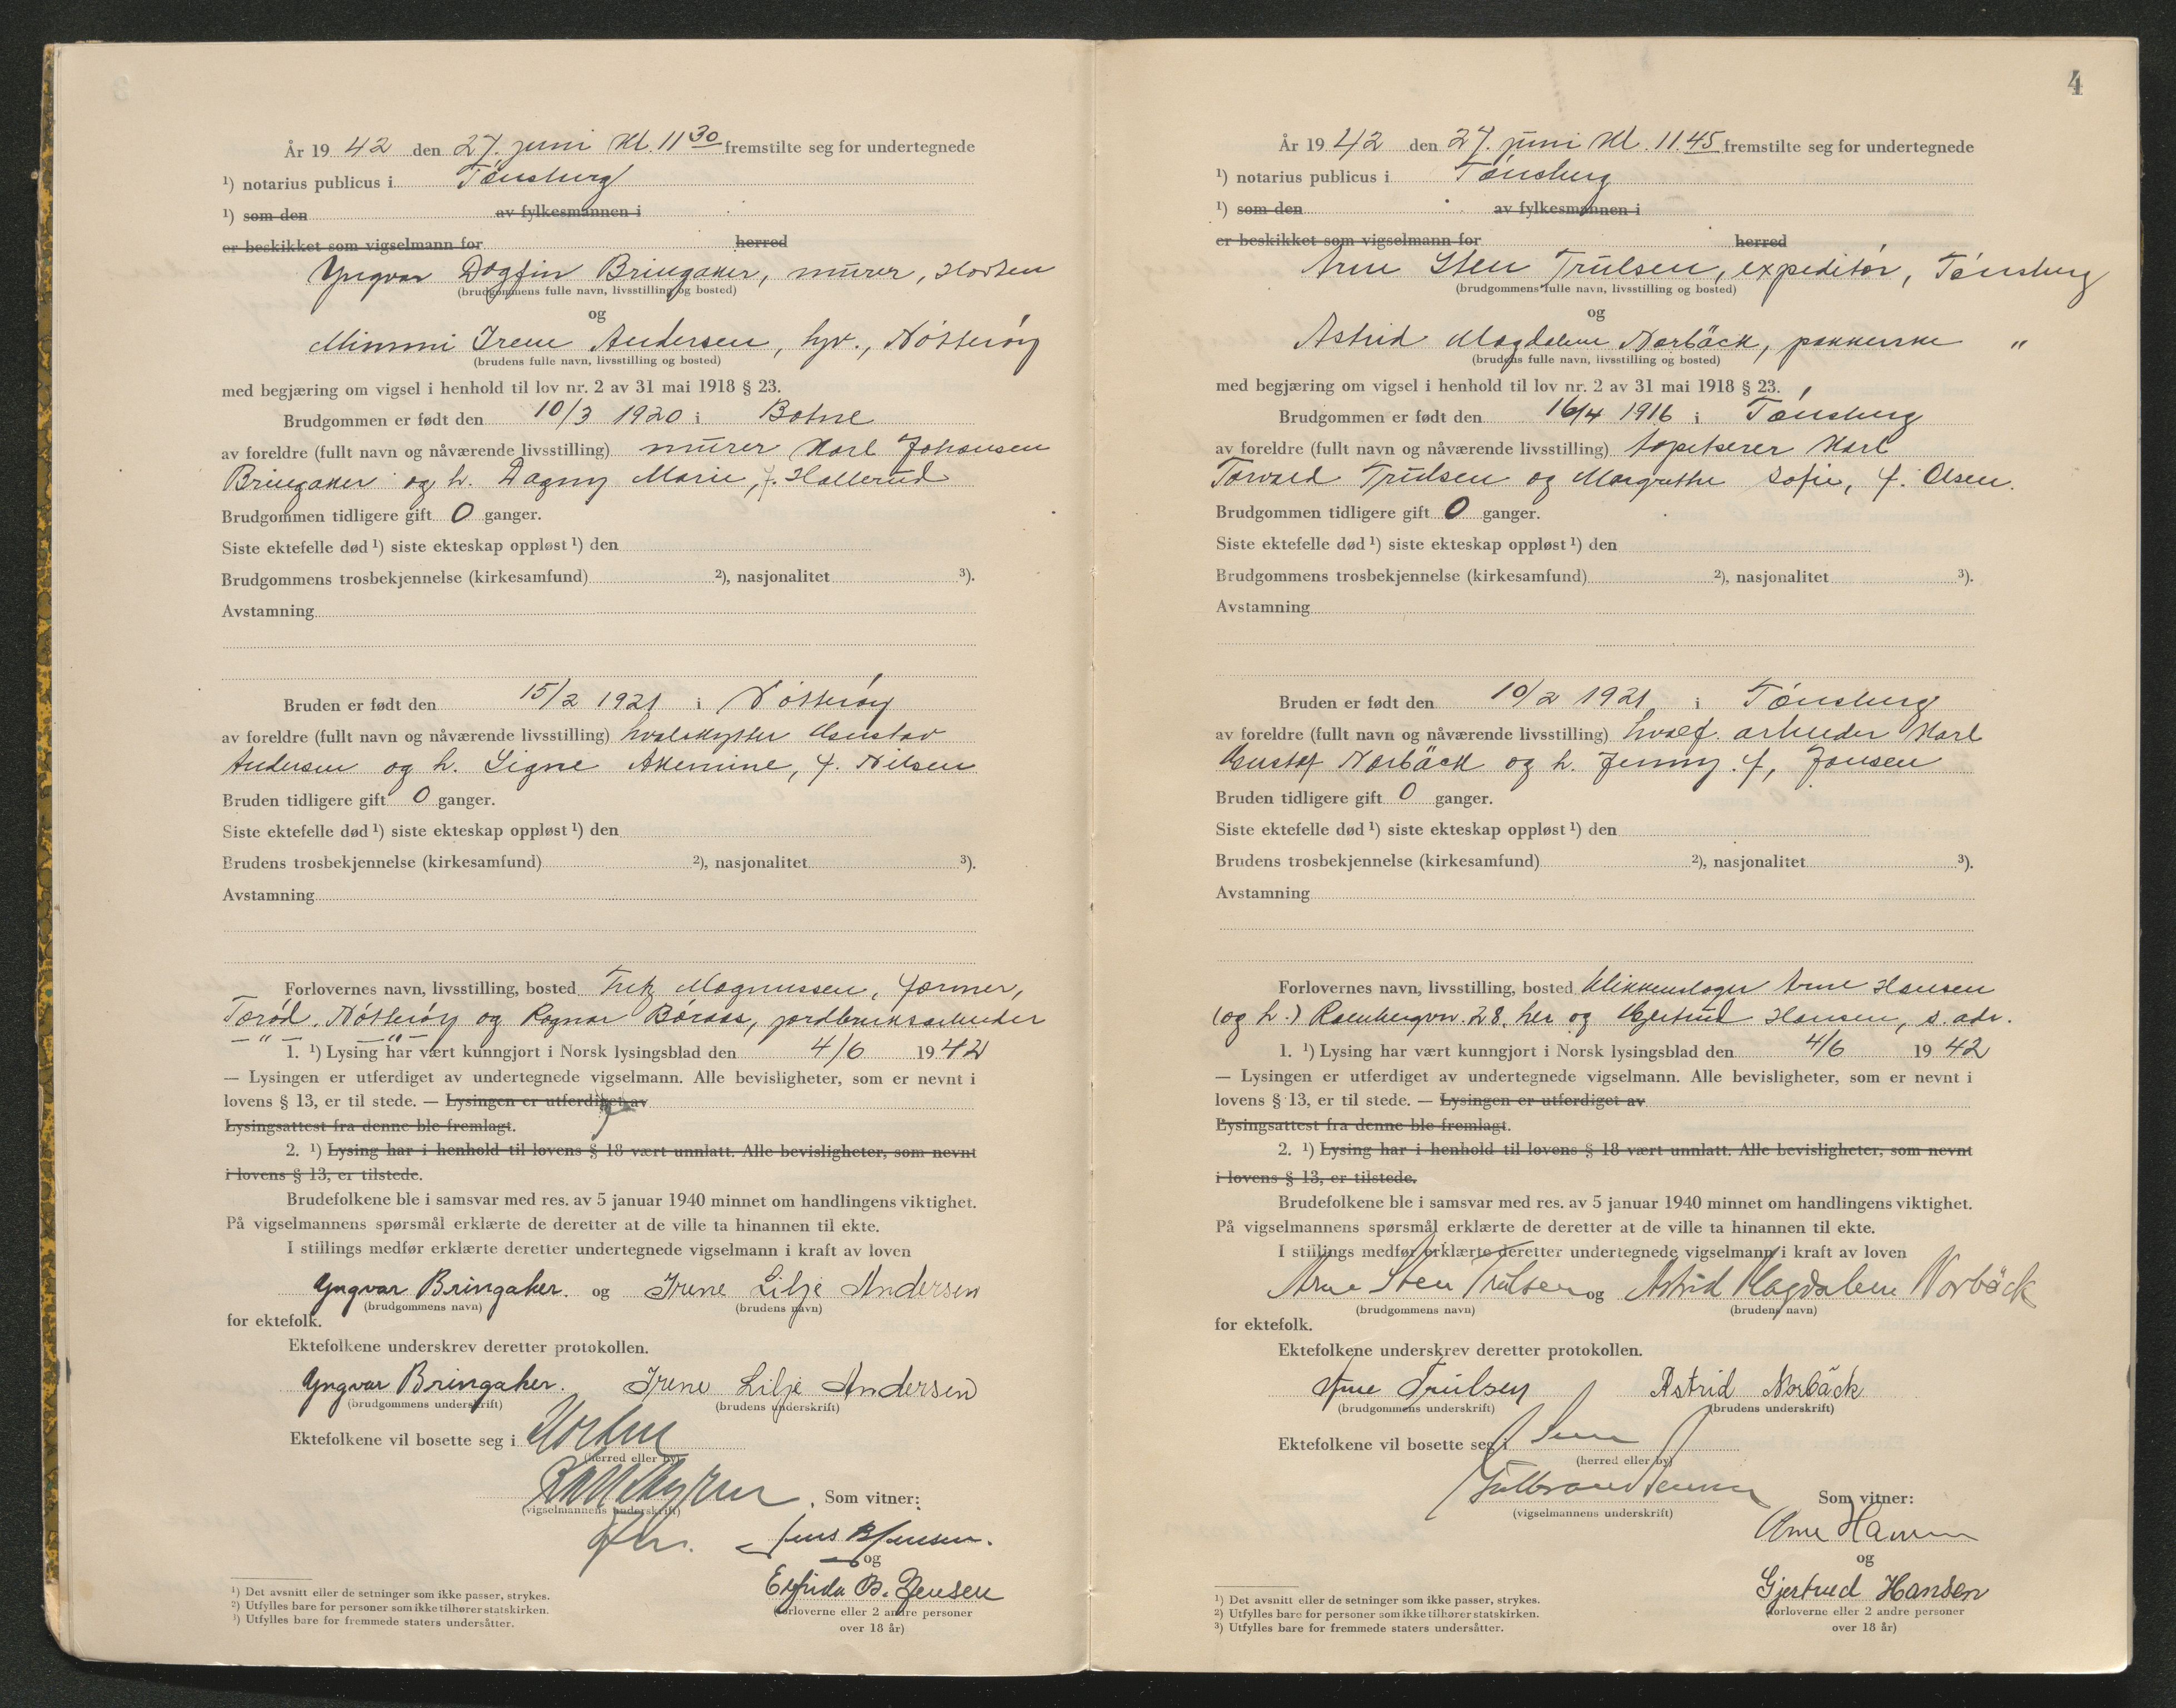 År 19 42 den 27. juni kl. 11 30 fremstilte seg for undertegnede
¹) notarius publicus i Tönsberg
¹) som den av fylkesmannen i
er beskikket som vigselmann for herred
Yngvar Dagfin Bringaker, murer, Horten
(brudgommens fulle navn, livsstilling og bosted)
og
Mimmi Irene Andersen, hjv., Nötteröy
(brudens fulle navn, livsstilling og bosted)
med begjæring om vigsel i henhold til lov nr. 2 av 31 mai 1918 § 23.
Brudgommen er født den 10/3 1920 i Botne
av foreldre (fullt navn og nåværende livsstilling) murer Karl Johansen
Bringaker og h. Dagny Marie, f. Hallerud
Brudgommen tidligere gift 0 ganger.
Siste ektefelle død ¹) siste ekteskap oppløst ¹) den
Brudgommens trosbekjennelse (kirkesamfund) ²), nasjonalitet ³).
Avstamning
Bruden er født den 15/2 1921 i Nötteröy
av foreldre (fullt navn og nåværende livsstilling) hvalskytter Gustav
Andersen og h. Signe Akermine, f. Nilsen
Bruden tidligere gift 0 ganger.
Siste ektefelle død ¹) siste ekteskap oppløst ¹) den
Brudens trosbekjennelse (kirkesamfund) ²), nasjonalitet ³).
Avstamning
Forlovernes navn, livsstilling, bosted Magnussen, former,
Töröd, Nötteröy og Ragnar Böraas, jordbruksarbeider
— " — — " —
1. ¹) Lysing har vært kunngjort i Norsk lysingsblad den 4/6 19 42
— Lysingen er utferdiget av undertegnede vigselmann. Alle bevisligheter, som er nevnt i
lovens § 13, er til stede. — Lysingen er utferdiget av
Lysingsattest fra denne ble fremlagt.
2. ¹) Lysing har i henhold til lovens § 18 vært unnlatt. Alle bevisligheter, som nevnt
i lovens § 13, er tilstede.
Brudefolkene ble i samsvar med res. av 5 januar 1940 minnet om handlingens viktighet.
På vigselmannens spørsmål erklærte de deretter at de ville ta hinannen til ekte.
I stillings medfør erklærte deretter undertegnede vigselmann i kraft av loven
Yngvar Bringaker. og Irene Lilje Andersen
(brudgommens navn) (brudens navn)
for ektefolk.
Ektefolkene underskrev deretter protokollen.
Yngvar Bringaker. Irene Lilje Andersen
(brudgommens underskrift) (brudens underskrift)
Ektefolkene vil bosette seg i Horten
(herred eller by)
Som vitner:
(vigselmannens underskrift)
Jens B Jensen.
og
Elfrida B. Jensen
(forloverne eller 2 andre personer
over 18 år)
¹) Det avsnitt eller de setninger som ikke passer, strykes.
²) Utfylles bare for personer som ikke tilhører statskirken.
³) Utfylles bare for fremmede staters undersåtter.
4
År 19 42 den 27. juni kl. 11.45 fremstilte seg for undertegnede
¹) notarius publicus i Tönsberg
¹) som den av fylkesmannen i
er beskikket som vigselmann for herred
Arne Sten Trulsen, expeditör, Tönsberg
(brudgommens fulle navn, livsstilling og bosted)
og
Astrid Magdalene Norbäck, pakkerske "
(brudens fulle navn, livsstilling og bosted)
med begjæring om vigsel i henhold til lov nr. 2 av 31 mai 1918 § 23.
Brudgommen er født den 16/4 1916 i Tönsberg
av foreldre (fullt navn og nåværende livsstilling) tapetserer Karl
Torvald Trulsen og Margrethe Sofie, f. Olsen.
Brudgommen tidligere gift 0 ganger.
Siste ektefelle død ¹) siste ekteskap oppløst ¹) den
Brudgommens trosbekjennelse (kirkesamfund) ²), nasjonalitet ³).
Avstamning
Bruden er født den 10/2 1921 i Tönsberg
av foreldre (fullt navn og nåværende livsstilling) hvalf. arbeider Karl
Gustaf Norbäck og h. Jenny f. Jonsen
Bruden tidligere gift 0 ganger.
Siste ektefelle død ¹) siste ekteskap oppløst ¹) den
Brudens trosbekjennelse (kirkesamfund) ²), nasjonalitet ³).
Avstamning
Forlovernes navn, livsstilling, bosted blikkenslager Arne Hansen
(og h.) 28, her og Gjertrud Hansen, s. adr.
1. ¹) Lysing har vært kunngjort i Norsk lysingsblad den 4/6 19 42
— Lysingen er utferdiget av undertegnede vigselmann. Alle bevisligheter, som er nevnt i
lovens § 13, er til stede. — Lysingen er utferdiget av
Lysingsattest fra denne ble fremlagt.
2. ¹) Lysing har i henhold til lovens § 18 vært unnlatt. Alle bevisligheter, som nevnt
i lovens § 13, er tilstede.
Brudefolkene ble i samsvar med res. av 5 januar 1940 minnet om handlingens viktighet.
På vigselmannens spørsmål erklærte de deretter at de ville ta hinannen til ekte.
I stillings medfør erklærte deretter undertegnede vigselmann i kraft av loven
Arne Sten Trulsen og Astrid Magdalene Norbäck
(brudgommens navn) (brudens navn)
for ektefolk.
Ektefolkene underskrev deretter protokollen.
Arne Trulsen Astrid Norbäck
(brudgommens underskrift) (brudens underskrift)
Ektefolkene vil bosette seg i
(herred eller by)
Som vitner:
(vigselmannens underskrift)
Arne Hansen
og
Gjertrud Hansen
(forloverne eller 2 andre personer
over 18 år)
¹) Det avsnitt eller de setninger som ikke passer, strykes.
²) Utfylles bare for personer som ikke tilhører statskirken.
³) Utfylles bare for fremmede staters undersåtter.